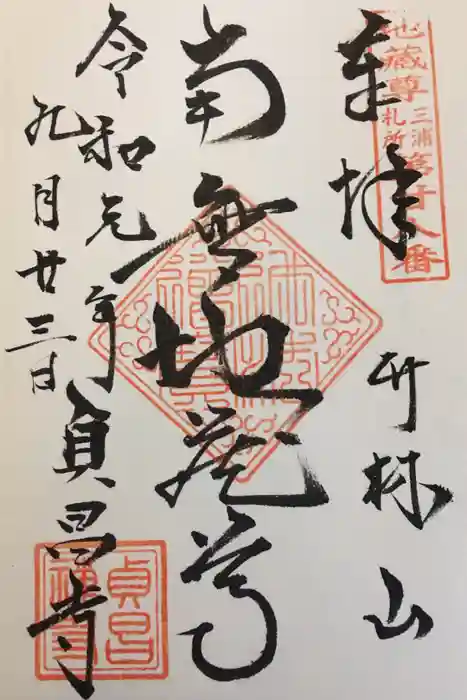 地蔵尊三浦札所第廿八番
奉拝
竹林山
南無地蔵尊
令和元年
九月廿三日
貞昌寺
貞昌